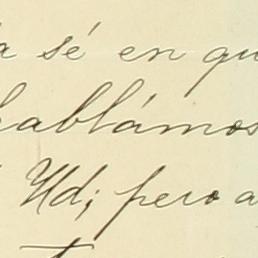 sé en qu
hablámos
Ud; pero a